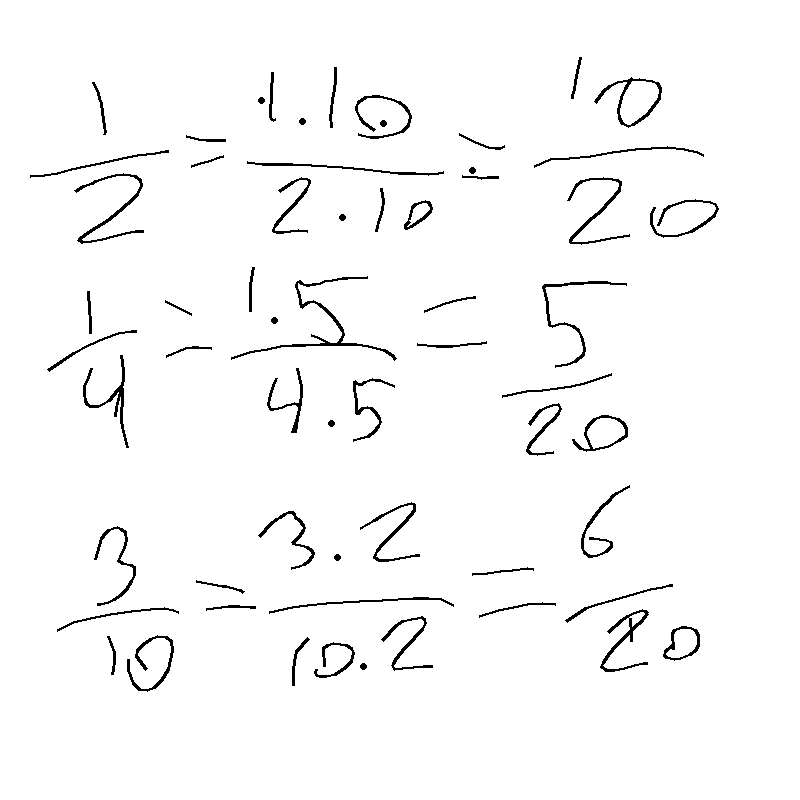 1/2 = 1.10/2.10 = 10/20
1/4 = 1.5/4.5 = 5/20
3/10 = 3.2/10.2 = 6/20